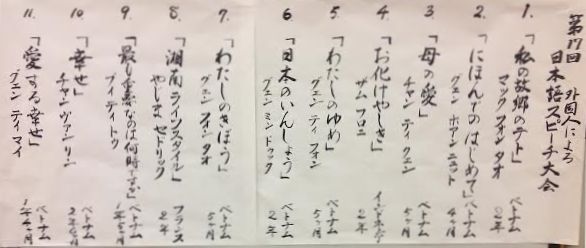 第17回 外国人による
日本語スピーチ大会
1. 「私の故郷のテト」
マック フォン タオ
ベトナム
2年
2. 「にほんでの はじめて」
グェン ホアン ニャット
ベトナム
4ヶ月
3. 「母の愛」
チャン ティ クェン
ベトナム
5ヶ月
4. 「お化けやしき」
サム フロニ
インドネシア
2年
5. 「わたしのゆめ」
グェン ティ フォン
ベトナム
5ヶ月
6. 「日本のいんしょう」
グェン ミン ドゥック
ベトナム
2年
7. 「わたしのきぼう」
グェン ファン タオ
ベトナム
5ヶ月
8. 「湘南ライフスタイル」
やじま セドリック
フランス
2年
9. 「最も重要なのは何時ですか」
ブイ ティ トゥ
ベトナム
1年5ヶ月
10. 「幸せ」
チャン ヴァン リン
ベトナム
2年
11. 「愛する幸せ」
グェン ティ マイ
ベトナム